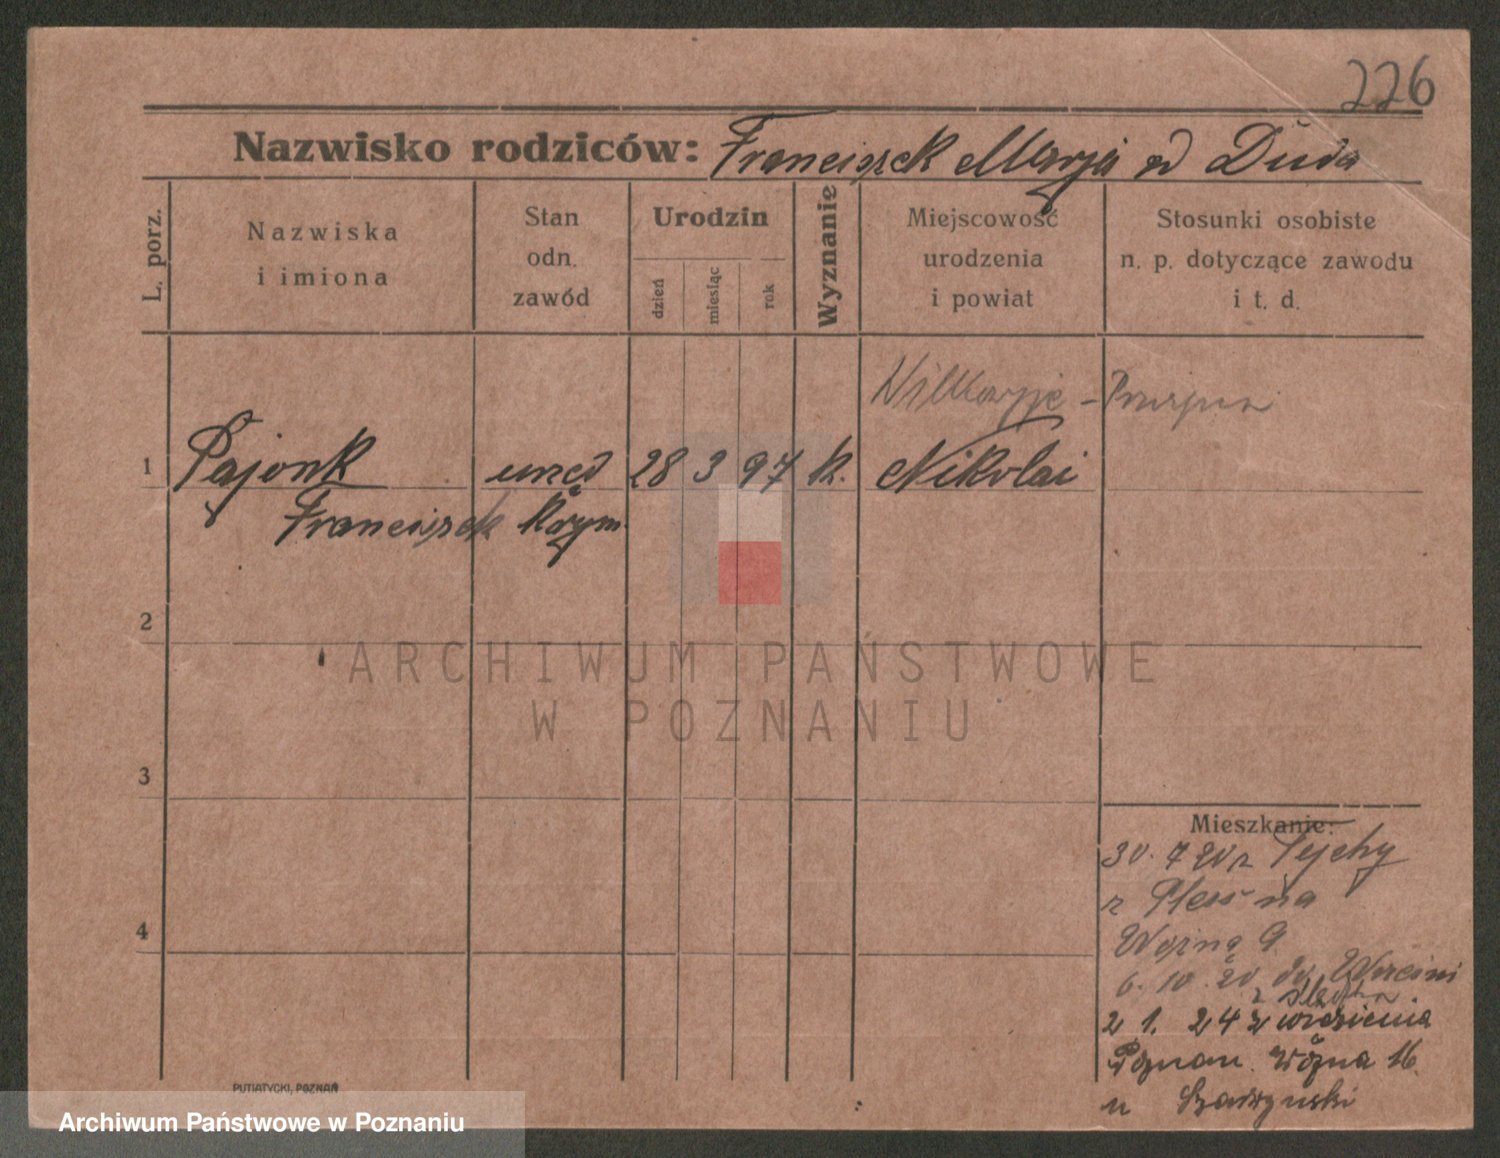 226
Nazwisko rodziców: Franciszek Marja od Duda
L. porz.
Nazwiska
i imiona
Stan
odn.
zawód
Urodzin
dzień
miesiąc
rok
Wyznanie
Miejscowość
urodzenia
i powiat
Stosunki osobiste
n. p. dotyczące zawodu
i t. d.
1 Pajonk urzęd 28 3 97 k. Nikolai
Franciszek
2
ARCHIWUM PAŃSTWOWE
W POZNANIU
3
4
Mieszkanie:
30. 7 20 z Tychy
z Pless na
Woźną 9
6. 10. 20 do
2 1. 24 z więzienia
Poznań. Woźna 16.
u
PUTIATYCKI, POZNAŃ
Archiwum Państwowe w Poznaniu